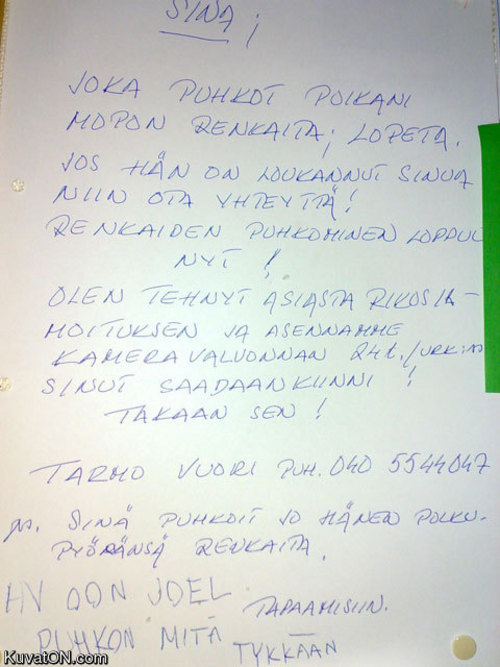 SINÄ;
JOKA PUHKOT POIKANI
MOPON RENKAITA; LOPETA.
JOS HÄN ON LOUKANNUT SINUA
NIIN OTA YHTEYTTÄ!
RENKAIDEN PUHKOMINEN LOPPUU
NYT!
OLEN TEHNYT ASIASTA RIKOSIL-
MOITUKSEN JA ASENNAMME
KAMERAVALVONNAN 24t./VRK:SSA
SINUT SAADAAN KIINNI!
TAKAAN SEN!
TARMO VUORI PUH. 040 5544047
ps. SINÄ PUHKOIT JO HÄNEN POLKU-
PYÖRÄNSÄ RENKAITA.
OON JOEL
TAPAAMISIIN.
PUHKON MITÄ TYKKÄÄN
KuvatON.com